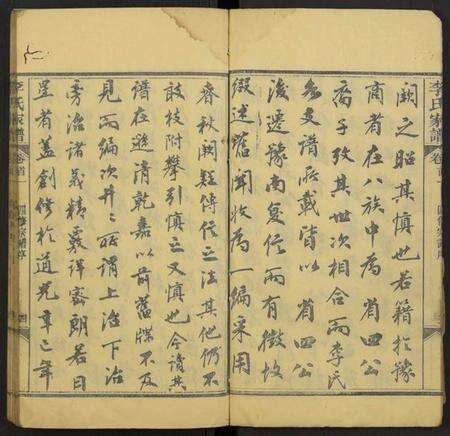 李氏家譜 卷首
闕之昭其慎也若籍於豫
商者在八族中為省四公
裔予攷其世次相合而李氏
文譜所載皆以省四公
後遷豫南信而有徵故
綴述舊聞收為一編采用
春秋闕疑傳信之法其他仍不
敢枝附攀引慎之又慎也今讀其
譜在遜清乾嘉以前舊牒不及
見而編次井井所謂上治下治
旁治諸義精覈詳密朗若日
星者蓋創修於道光辛巳年
李氏家譜 卷首 四修宗譜序 四